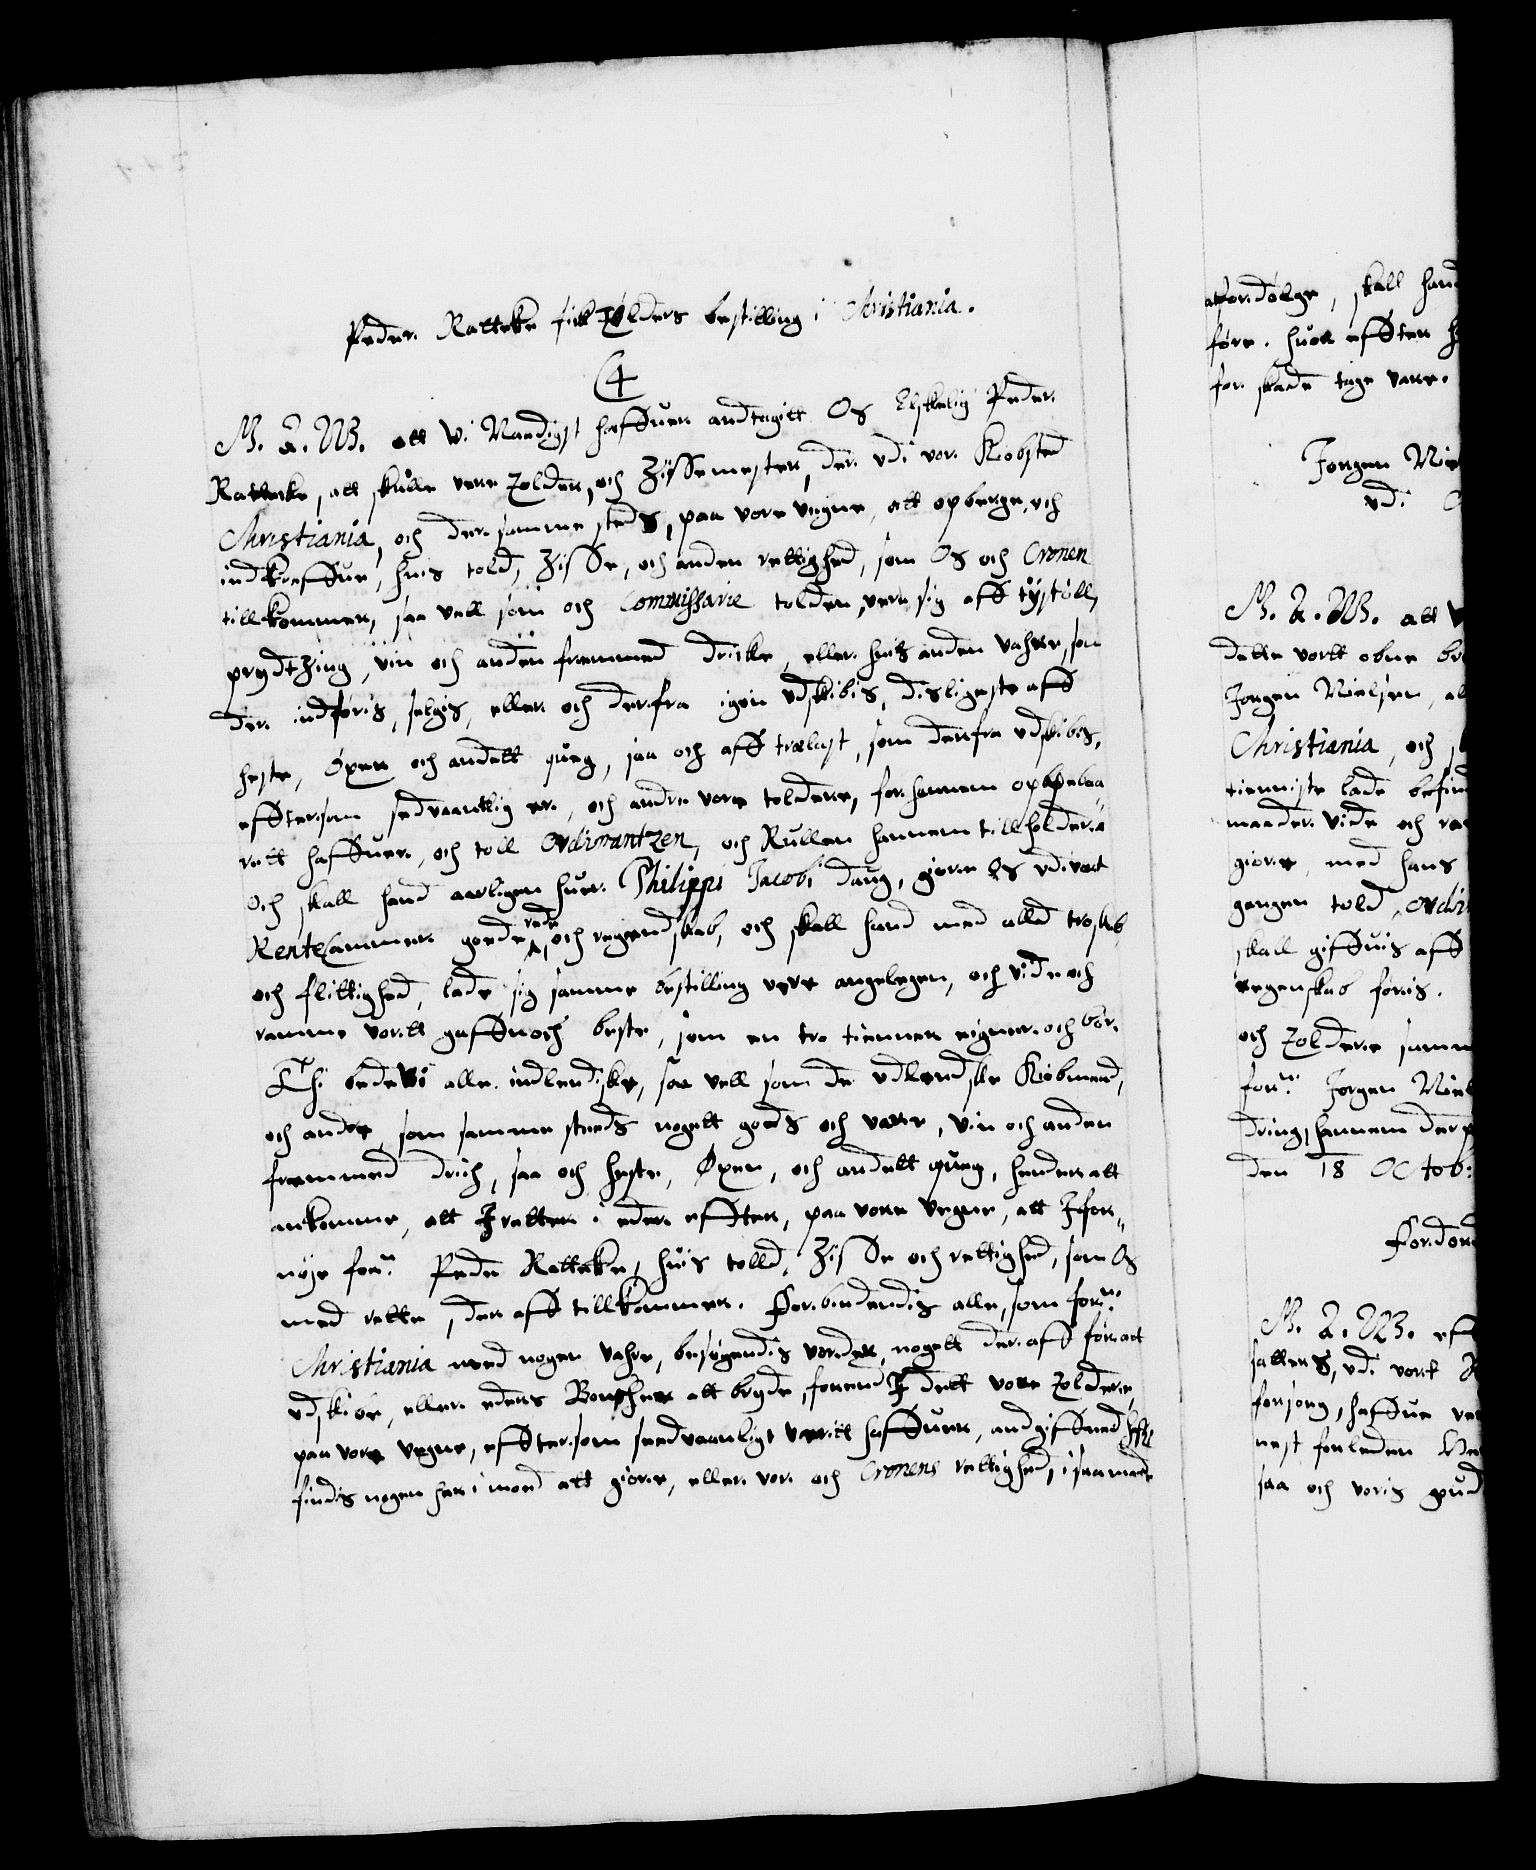 Peder Rattcke fick Tolders bestilling i Christiania.
C4
M. A. W. att Wi Naadigst haffuer andtagitt Os Elskelig Peder
Rattcke, att skulle vere Zolder, och Zissemester, der udi vor Kiøbsted
Christiania, och der samme steds, paa vore vegne, att opberge, och
indkreffue, huis told, Zisse, och anden rettighed, som Os och Cronen
tillkommer, saa vell som och Commissarie tolden, vere sig aff tystøll,
prydtzing, viin och anden fremmed dricke, eller huis anden vahre, som
der indføris, selgis, eller och derfra igien udskibis, disligeste aff
heste, Øxen och andett queg, saa och aff trælast, som derfra udskibes,
effterson sedvaanlig er, och andre vore toldere, for hannem oppebaa-
rett haffuer, och toll Ordinantzen, och Rullen hannem tillholder.
Och skall hand aarligen huer Philippi Jacobi daug, giøre Os udi vort
RenteCammer goede rede och regendskab, och skall hand med alld troskab
och flittighed, lade sig samme bestilling vere angelegen, och vide och
ramme vortt gaffn och beste, som en tro tienner eigner och bør.
Thi bede Wi alle indlendiske, saa vell som de udlendske Kiøbmend,
och andre, som samme steds nogett goeds och vare, viin och anden
fremmed drick, saa och heste, Øxen, och andett queg, hender att
ankomme, att I retter i eder effter, paa vore vegne, att I for-
nøje forne Peder Rattcke, huis told, Zisse och rettighed, som Os
med rette, der aff tillkommer. Forbindendis alle, som forne
Christiania med nogen vahre, besøgendis vorder, nogett der aff før att
udskibe, eller eders att bryde, førend I dett vore Zoldere,
paa vore vegne, efftersom seedvaanligt veritt haffuer, andgiffued
findis nogen her imod att giøre, eller vor och Cronens rettighed, i saa maade

atfordølge, skall hand
føre. huor effter
for skade tage vare.
Jørgen Niel
udi
M. A. W. att
dette vortt obne br
Jørgen Nielsen,
Christiania, och
tienniste lade befind
maader vide och ra
giøre, med hans
gangen told, Ordin
skall giffuis aff
regenskab føris.
och Zoldere samm
forne Jørgen Niel
dring, hannem der
den 18 Octob:
Fordend
M. A. W. eff
satters, udi vort
forsorg, haffue
nest forleden
saa och voris gud